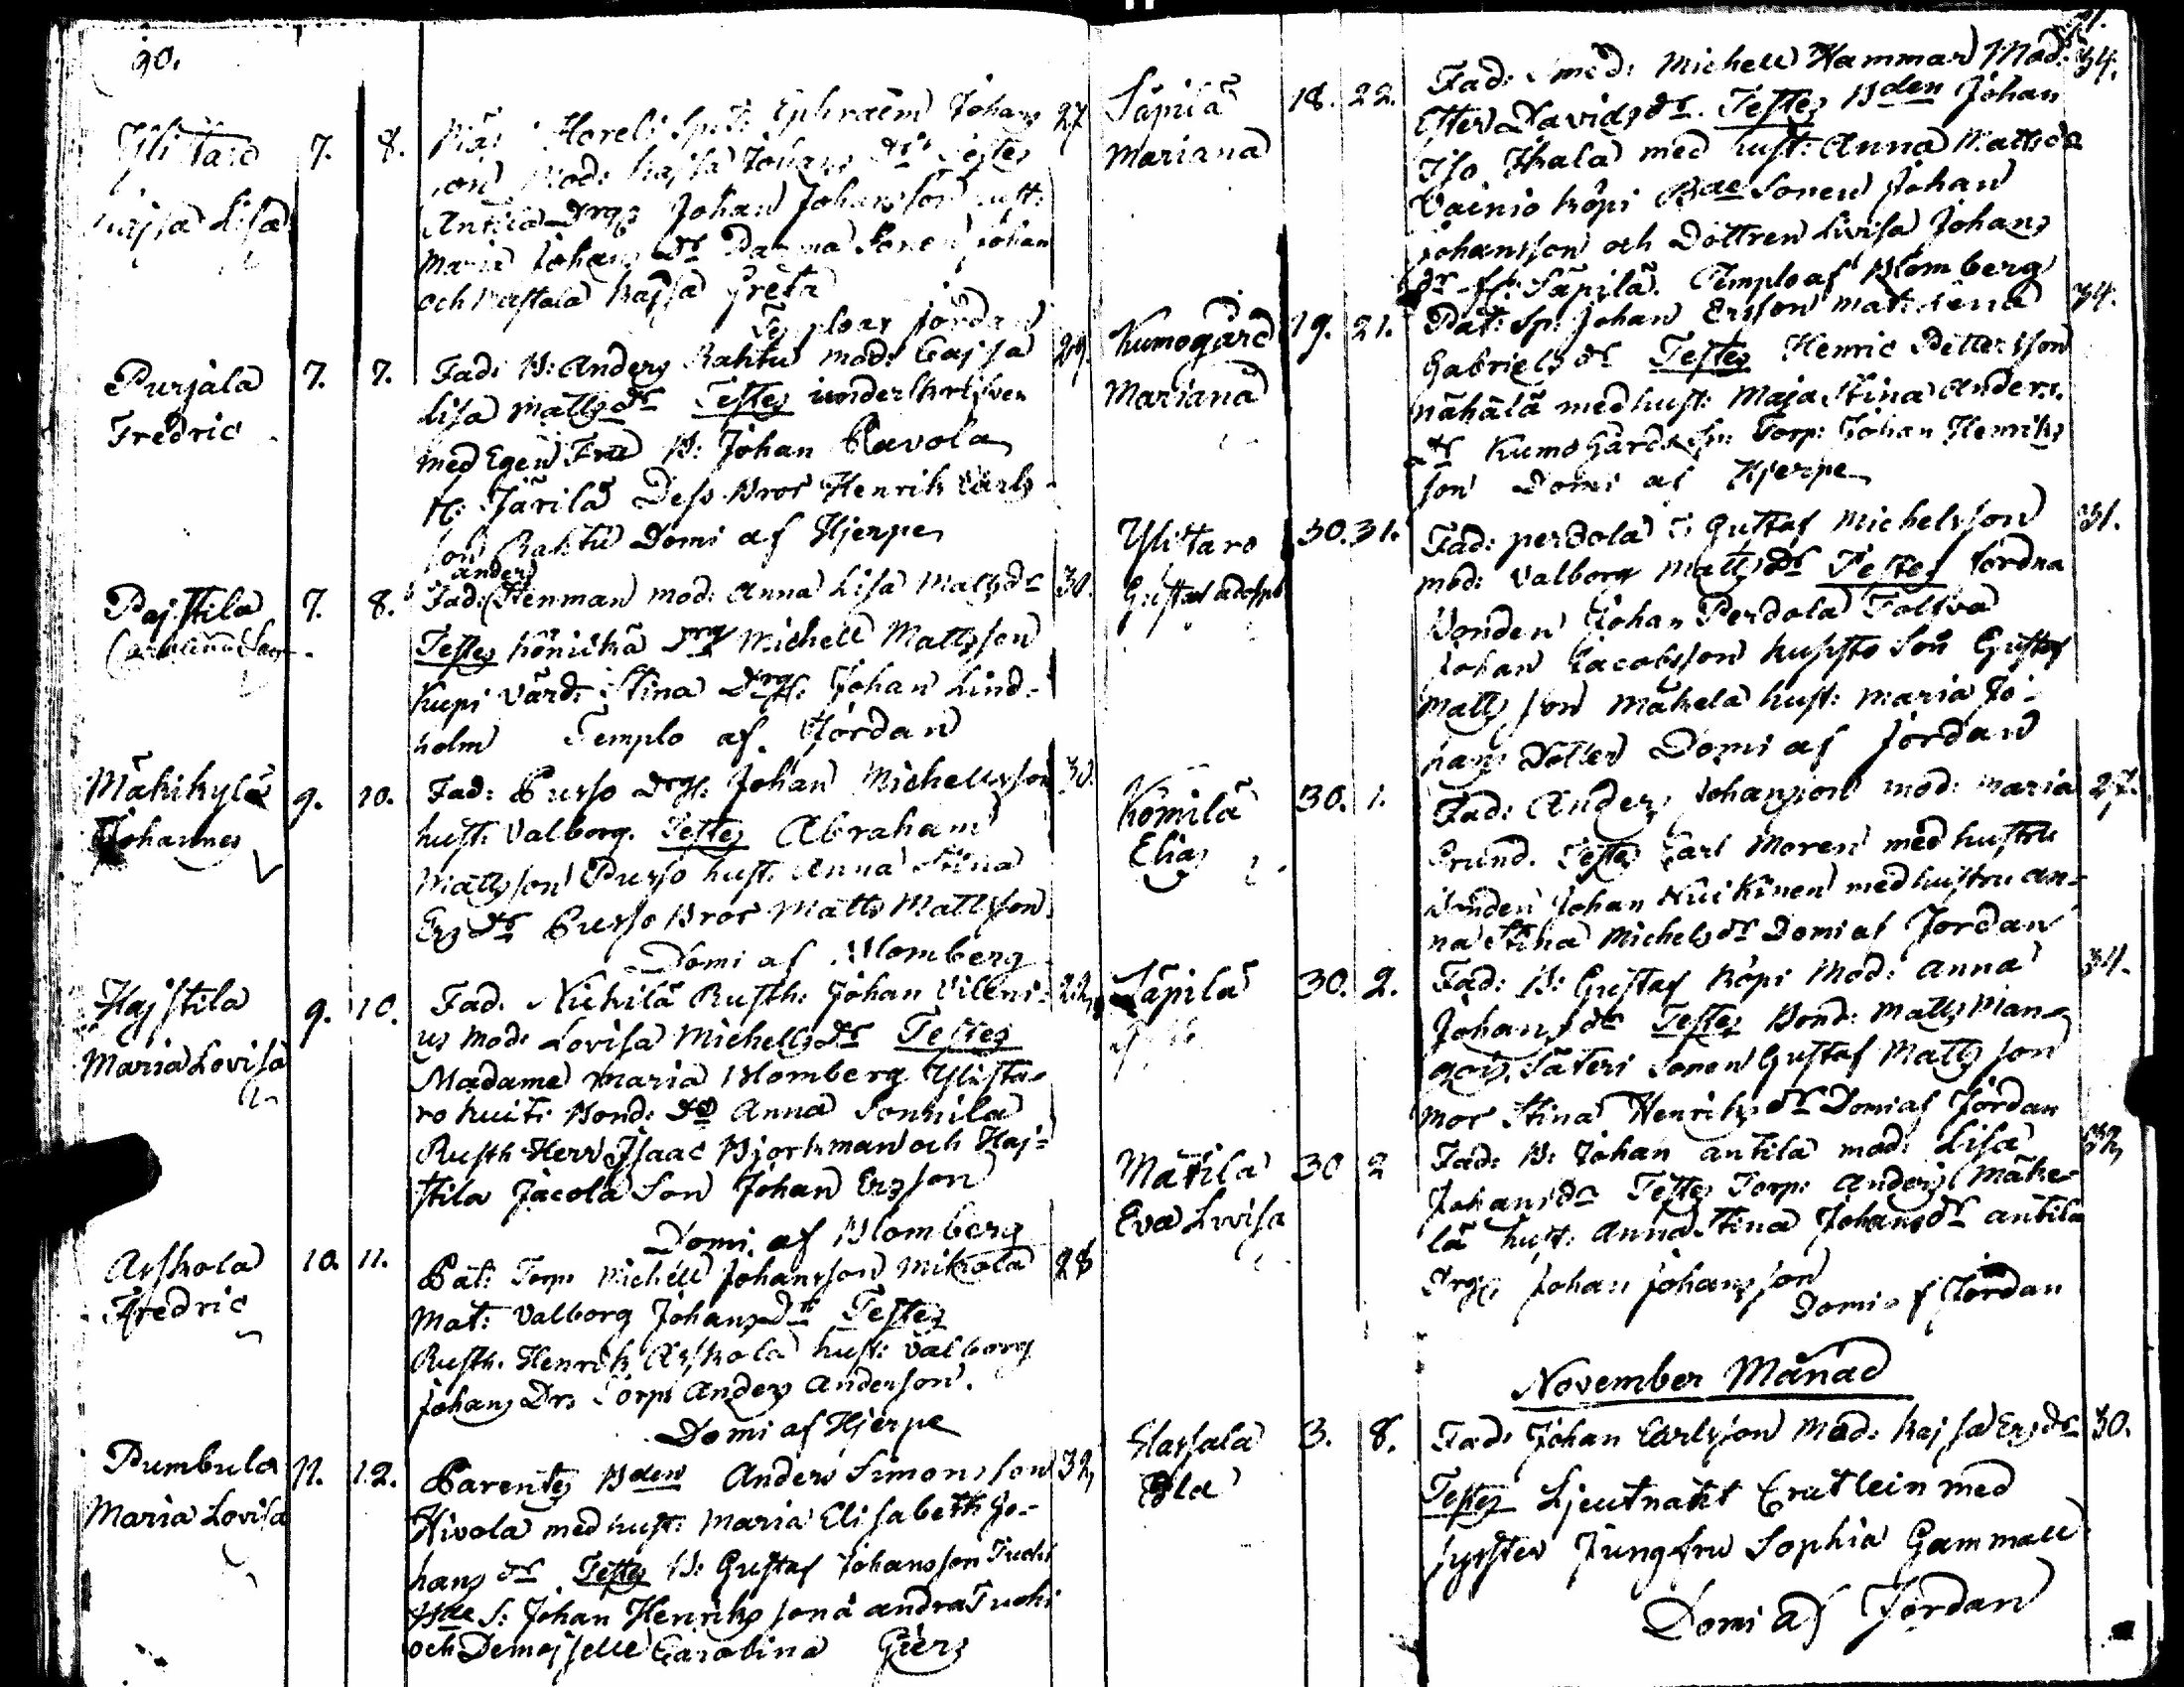 90.
Ylistaro 7. 8.
Kajsa Lisa
Johans 27
son Mod: Kajsa Johans dr Testes
Anttila Drg: Johan Johansson hust:
Maria Johans dr Sonen Johan
och Kajsa Greta
Jordan
Purjala 7. 7. Fad: B: Anders Rahtu mod: Cajsa 29.
Fredric Lisa Matts dr Testes underskrifven
med Egen Fru B: Johan Ravola
fr: Järilä Dess Bror Henrik Carls
son Rahtu Domi af Hjerpe
Pajstila 7. 8. Fad: Anders Stenman mod: Anna Lisa Mats dr 30.
Testes Könickä Drg Michell Mattsson
Kupi Värd: Stina Drg: Johan Lind-
holm Templo af Jordan
Mäkikylä 9. 10. Fad: Purso Drg: Johan Michellsson 30.
Johannes hust: Valborg. Testes Abraham
Mattsson Purso hust: Anna Stina
Ers dr Purso Bror Matts Mattsson
Domi af Blomberg
Hajstila 9. 10. Fad. Nickilä Rusth: Johan Villeni- 22,
Maria Lovisa us Mod: Lovisa Michells dr Testes
Madame Maria Blomberg Ylista-
ro Bond: Anna Sonnila
Rusth Herr Isaac Björkman och Haj-
stila Jacola Son Johan Ersson
Domi af Blomberg
Arskola 10. 11. Pat: Torp: Michell Johansson Mikola 28
Fredric Mat: Valborg Johans Dr Testes
Rusth. Henrik Arskola hust: Valborg
Johans Dr. Torp: Anders Anderson.
Domi af Hjerpe
Pumbula 11. 12. Parentes Bden Anders Simonsson 32,
Maria Lovisa Hivola med hust: Maria Elisabeth Jo-
hans dr Testes B: Gustaf Johansson
Bde S: Johan Henriksson å andra
och Demoiselle Carolina Giers
91.
Säpilä 18. 22. Fad: Smed: Michell Hammar Mod: 34.
Mariana Davids dr. Testes Bden Johan
Iso Ihala med hust: Anna Matts dr
Vainio Köpi Bde Sonen Johan
Johansson och Dottren Lovisa Johans
dr fr: Säpilä. Templo af Blomberg
Kumogård 19. 21. Pat: Sp: Johan Ersson Mat: Lena 34.
Mariana Gabriels dr Testes Henric Pettersson
Nähälä med hust: Maja Stina Anders
dr Kumo Gårds Torp: Johan Henriks
son Domi af Hjerpe
Ylistaro 30. 31. Fad: Perdola Gustaf Michelsson 31.
Gustaf Adolph mod: Valborg Matts dr Testes
Bonden Johan Perdola
Johan Jacobsson Son Gustaf
Mattsson Mäkelä hust: Maria Jo-
hans Dotter Domi af Jordan
Kömilä 30. 1. Fad: Anders Johansson mod: Maria 27.
Elias Grund. Testes Carl Moren med hustru
Bonden Johan med hustru An-
na Stina Michels dr Domi af Jordan
Säpilä 30. 2. Fad: B: Gustaf Köpi Mod: Anna 34.
Johans dr Testes Bond: Matts
Säteri Sonen Gustaf Mattsson
Mor Stina Henriks dr Domi af Jordan
Matila 30 2 Fad: B: Johan Antila mod: Lisa 32,
Eva Lovisa Johans dr Testes Torp: Anders Mäke-
lä hust: Anna Stina Johans dr Antila
Drg: Johan Johansson
Domi af Jordan
November Månad
3. 8. Fad: Johan Carlsson Mod: Kajsa Ers dr 30.
Testes Ljeutnant med
syster Jungfru Sophia Gammall
Domi af Jordan